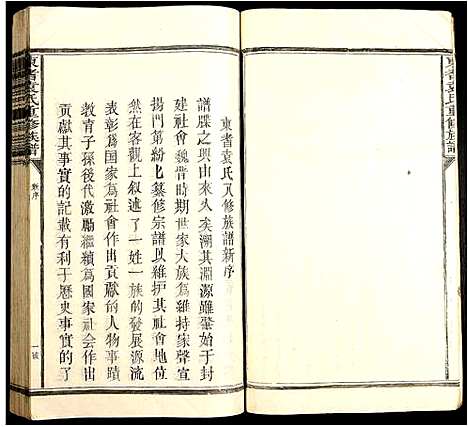 東耆袁氏重修族譜
東耆袁氏八修族譜新序
譜牒之興由來久矣溯其淵源雖肇始于封
建社會魏晋時期世家大族爲維持家聲宣
揚門第紛紛纂修宗譜以維护其社會地位
然在客观上叙述了一姓一族的發展源流
表彰爲國家爲社會作出貢獻的人物事蹟
教育子孫後代激励繼續爲國家社会作出
贡献其事實的記載有利于歷史事實的了
東耆袁氏重修族譜
新序
一号